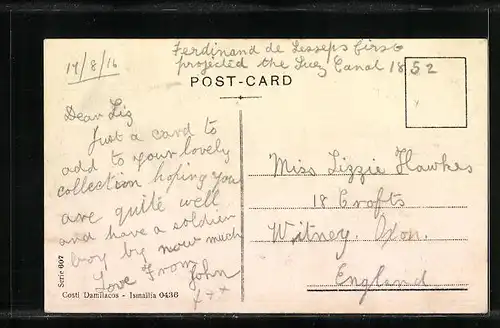 17/8/16
Ferdinand de Lesseps first
projected the Suez Canal 1852
POST-CARD
Dear Liz
Just a card to
add to your lovely
collection hoping you
are quite well
and have a soldier
boy by now much
Love From
John
x x x
Miss Lizzie Hawkes
18 Crofts
Witney. Oxon.
England
Serie 607
Costi Damilacos - Ismailia 0436